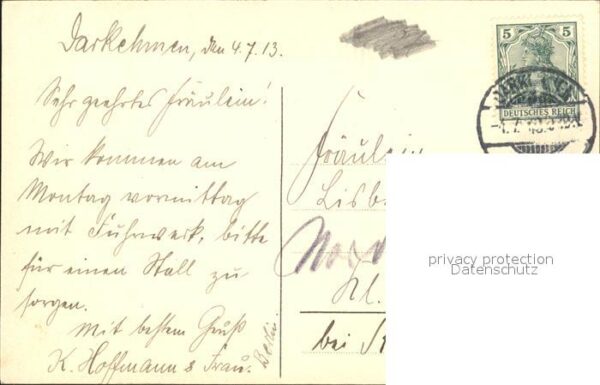 Darkehmen, den 4.7.13.
Sehr geehrtes Fräulein!
Wir kommen am
Montag vormittag
mit Fuhrwerk, bitte
für einen Stall zu
sorgen.
Mit bestem Gruß
K. Hoffmann & Frau.
Berlin.
5 5
DEUTSCHES REICH
Fräulein
Lisb
Kl.
bei
privacy protection
Datenschutz